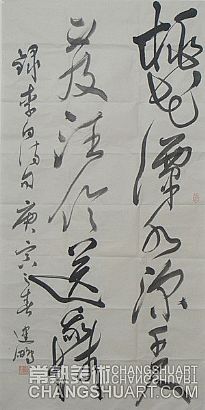 桃花潭水深千尺
不及汪伦送我情
録李白诗句 庚寅之春 建鹏
常熟美术 CHANGSHUART
CHANGSHUART.COM